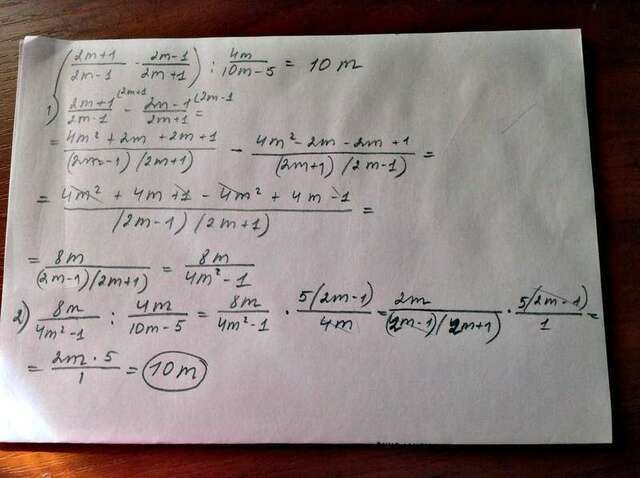 ( (2m+1)/(2m-1) - (2m-1)/(2m+1) ) : 4m/(10m-5) = 10m
1) (2m+1)/(2m-1) (2m+1 - (2m-1)/(2m+1) (2m-1 =
= (4m² + 2m + 2m + 1)/((2m-1)(2m+1)) - (4m² - 2m - 2m + 1)/((2m+1)(2m-1)) =
= (4m² + 4m + 1 - 4m² + 4m - 1)/((2m-1)(2m+1)) =
= 8m/((2m-1)(2m+1)) = 8m/(4m² - 1)
2) 8m/(4m²-1) : 4m/(10m-5) = 8m/(4m²-1) · 5(2m-1)/4m = 2m/((2m-1)(2m+1)) · 5(2m-1)/1 =
= (2m · 5)/1 = 10m